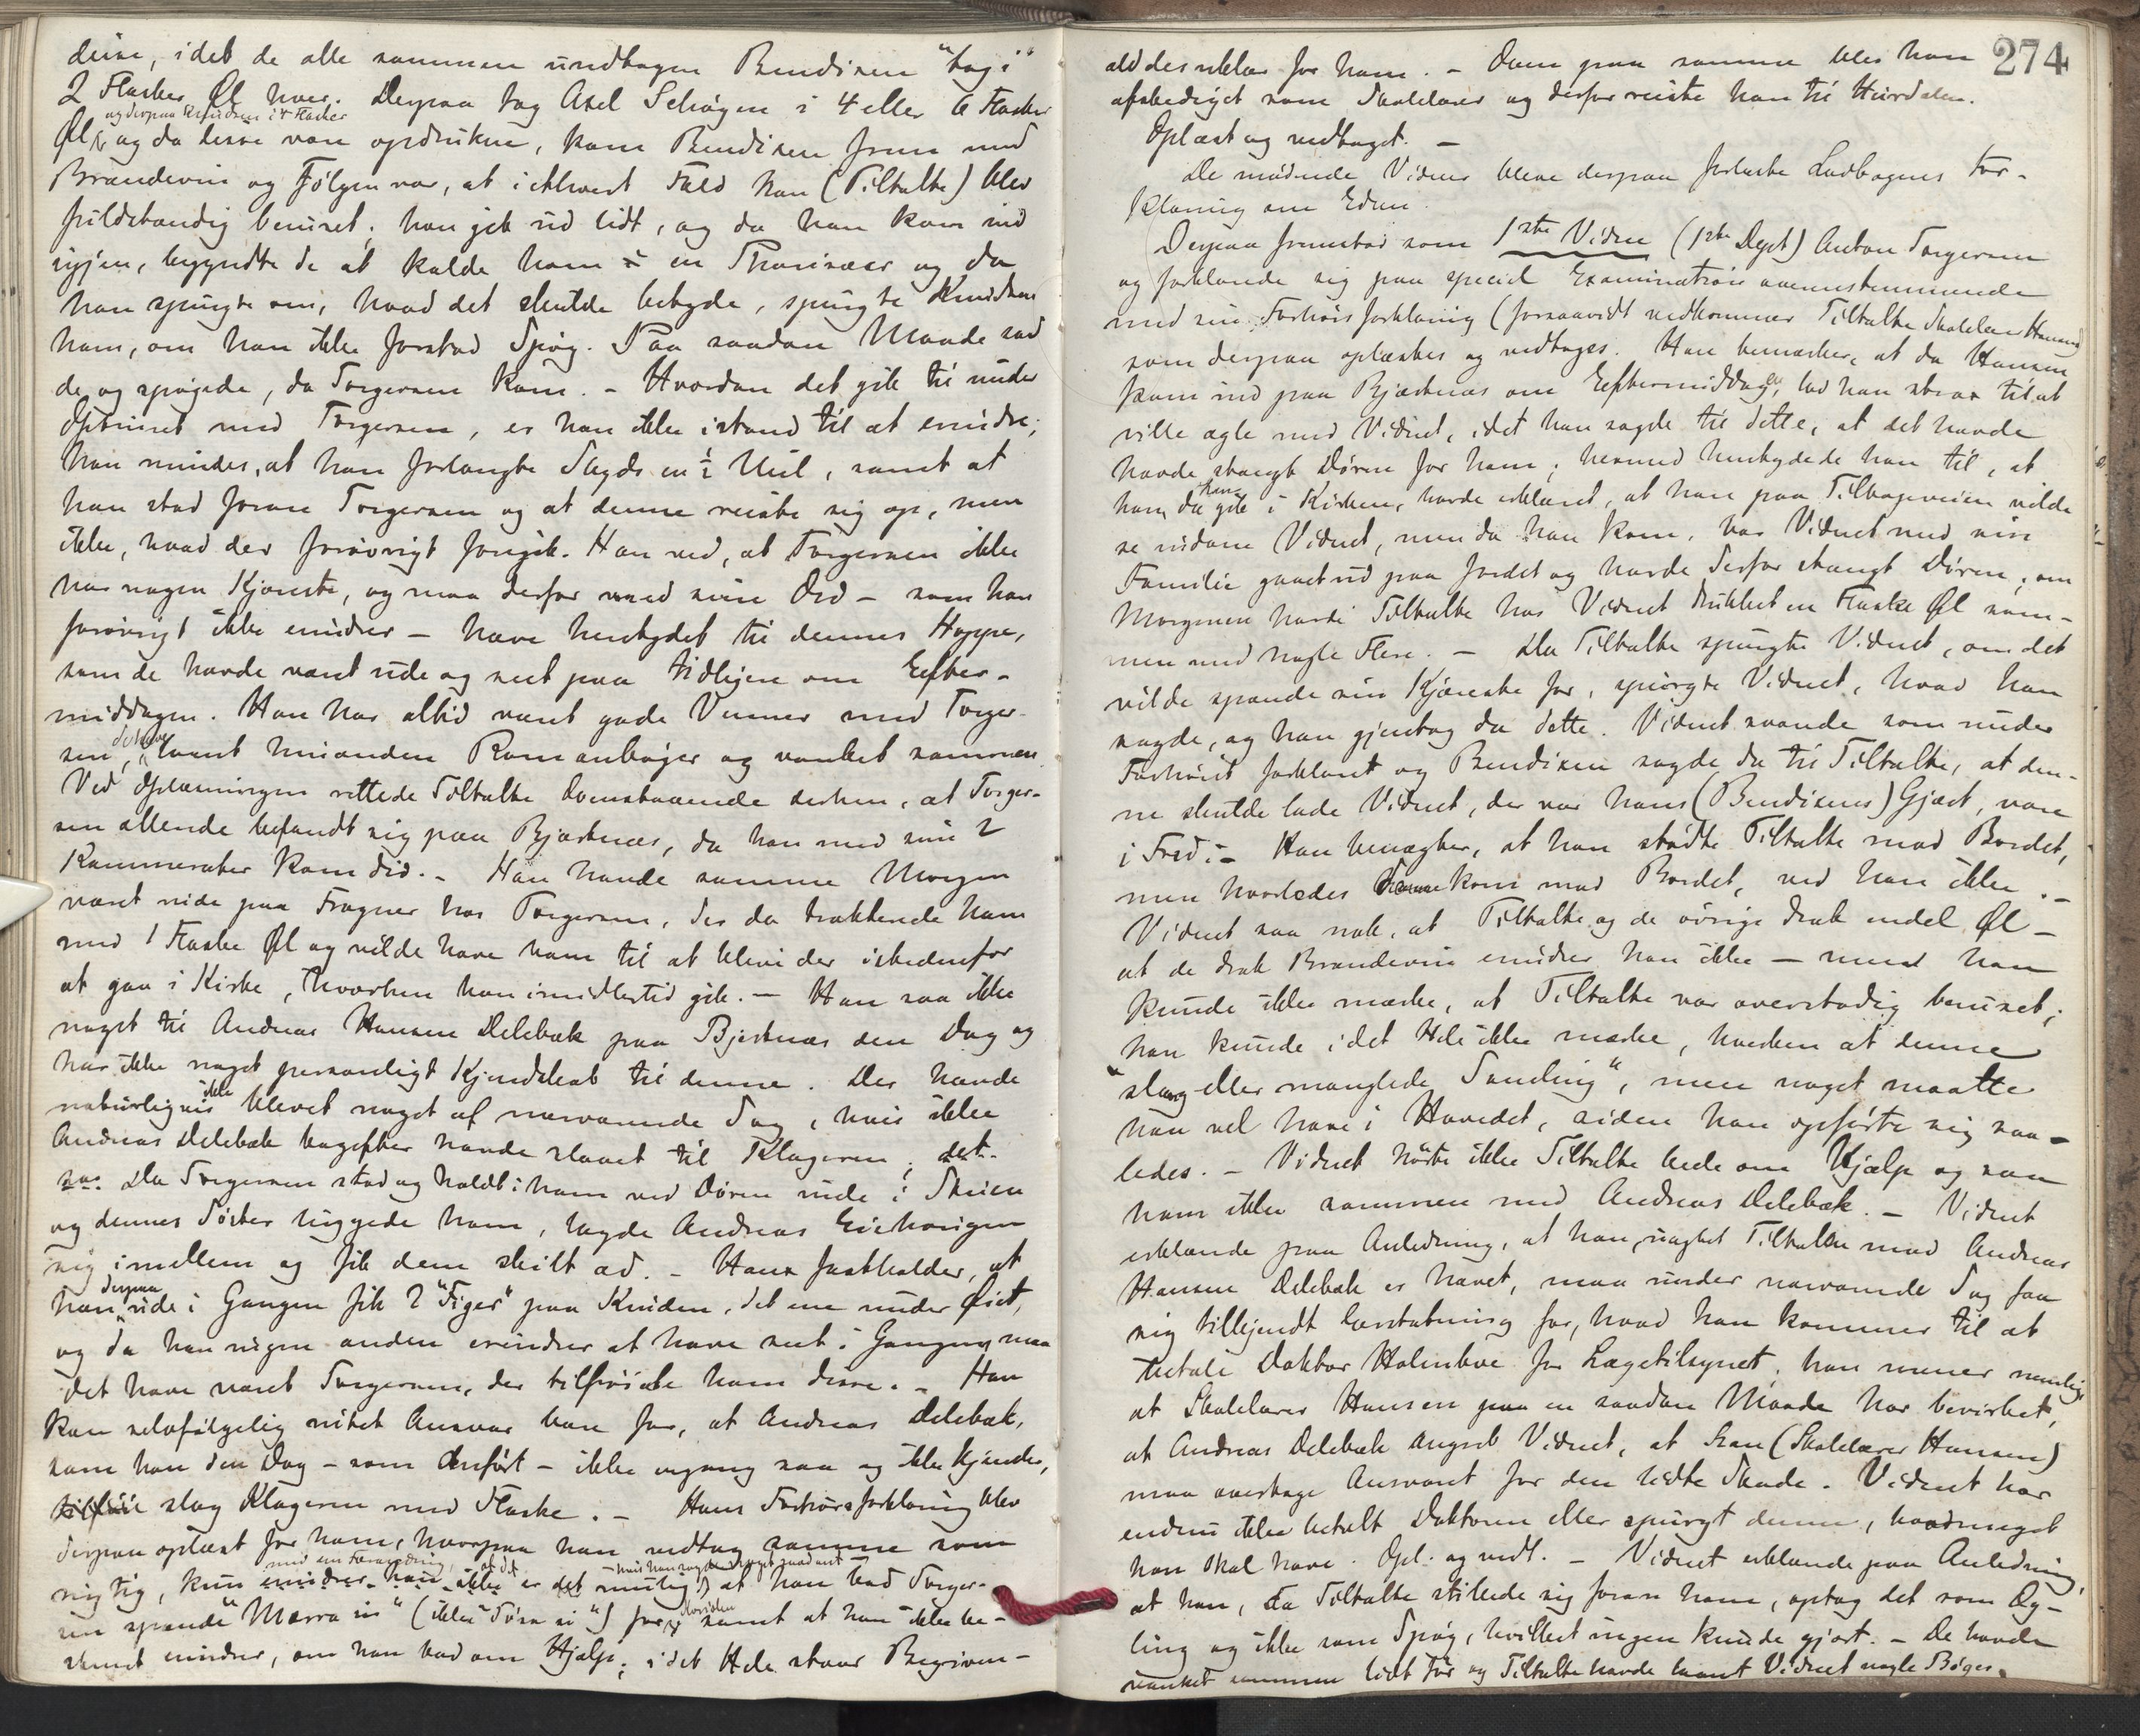 disse, idet de alle sammen undtagen Bendixen "tog i"
2 Flasker Øl hver. Derpaa tog Axel Schøgen i 4 eller 6 Flasker
og derpaa Knudsen i 4 Flasker
Øl, og da disse vare opdrukne, kom Bendixen frem med
Brændevin og Følgen var, at i ethvert Fald han (Tiltalte) blev
fuldstændig beruset; han gik ud lidt, og da han kom ind
igjen, begyndte de at kalde ham en Pharisæer og da
han spurgte om, hvad det skulde betyde, spurgte Knudsen
ham, om han ikke forstod Spøg. Paa saadan Maade sad
de og spøgede, da Torgersen kom. - Hvordan det gik til under
Optrinet med Torgersen, er han ikke istand til at erindre;
han mindes, at han forlangte Skyds en ½ Miil, samt at
han stod foran Torgersen og at denne reiste sig op, men
ikke, hvad der forøvrigt foregik. Han ved, at Torgersen ikke
har nogen Kjæreste, og maa derfor med sine Ord - som han
forøvrigt ikke erindrer - have hentydet til dennes Hoppe,
som de havde været ude og seet paa tidligere om Efter-
middagen. Han har altid været gode Venner med Torger-
sen, de have laant hinanden Romanbøger og vanket sammen.
Ved Oplæsningen rettede Tiltalte Ovenstaaende derhen, at Torger-
sen allerede befandt sig paa Bjærknæs, da han med sine 2
Kammerater kom did. - Han havde samme Morgen
været inde paa Frogner hos Torgersen, der da trakterede ham
med 1 Flaske Øl og vilde have ham til at blive der istedenfor
at gaa i Kirke, hvorhen han imidlertid gik. - Han saa ikke
noget til Andreas Hansen Delebæk paa Bjerknæs den Dag og
har ikke noget personligt Kjendskab til denne. Der havde
naturligvis ikke blevet noget af nærværende Sag, hvis ikke
Andreas Delebæk bagefter havde slaaet til Klageren;
Da Torgersen stod og holdt i ham ved Døren inde i Skuen
og dennes Søster huggede ham, lagde Andreas
sig imellem og fik dem skilt ad. - Han fastholder, at
han derpaa ude i Gangen fik 2 "Figer" paa Kinden, det ene under Øiet,
og da han ingen anden erindrer at have seet i Gangen, maa
det have været Torgersen, der tilføiede ham disse. - Han
kan selvfølgelig intet Ansvar bære for, at Andreas Delebæk,
som han den Dag - som anført - ikke engang saa og ikke kjender,
slog Klageren med Flaske. - Hans Forhørsforklaring blev
derpaa oplæst for ham, hvorpaa han vedtog samme som
rigtig, kun med en Formodning, at det - hvis han sagde noget saadant -
er det mulig, at han bad Torger-
sen spænde "Mærra si" (ikke "Tøsa si") for, samt at han ikke be-
stemt erindrer, om han bad om Hjælp; i det Hele staar Begiven-
274
alddeles uklar for ham. - Dom paa samme blev han
afskediget som Skolelærer og derfor reiste han til Hurdalen.
Oplæst og vedtaget. -
De mødende Vidner bleve derpaa forelæste Lovbogens For-
klaring om Eden.
Derpaa fremstod som 1ste Vidne (1ste Dept) Anton Torgersen
og forklarede sig paa special Examination overensstemmende
med sin Forhørsforklaring (forsaavidt vedkommer Tiltalte Skolelærer Hansen)
som derpaa oplæstes og vedtoges. Han bemærker, at da Hansen
kom ind paa Bjærknæs om Eftermiddagen, lod han strax til at
ville ægle med Vidnet, idet han sagde til dette, at det havde
havde stængt Døren for ham; hermed hentydede han til, at
han, da han gik i Kirken, havde erklæret, at han paa Tilbageveien vilde
se indom Vidnet, men da han kom, var Vidnet med sin
Familie gaaet ud paa Jordet og havde derfor stængt Døren; om
Morgenen havde Tiltalte hos Vidnet drukket en Flaske Øl sam-
men med nogle Flere. - Da Tiltalte spurgte Vidnet, om det
vilde spænde sin Kjæreste for, spurgte Vidnet, hvad han
sagde, og han gjentog da dette. Vidnet svarede som under
Forhøret forklaret og Bendixen sagde da til Tiltalte, at den-
ne skulde lade Vidnet, der var hans (Bendixens) Gjæst, være
i Fred. - Han benægter, at han stødte Tiltalte mod Bordet,
men hvorledes denne kom mod Bordet, ved han ikke. -
Vidnet saa nok, at Tiltalte og de øvrige drak endel Øl -
at de drak Brændevin erindrer han ikke - men han
kunde ikke mærke, at Tiltalte var overstadig beruset;
han kunde i det Hele ikke mærke, hverken at denne
"slang eller manglede Samling", men noget maatte
han vel have i Hovedet, siden han opførte sig saa-
ledes. - Vidnet hørte ikke Tiltalte bede om Hjælp og saa
ham ikke sammen med Andreas Delebæk. - Vidnet
erklærede paa Anledning, at han, uagtet Tiltalen mod Andreas
Hansen Delebæk er hævet, maa under nærværende Sag faa
sig tilkjendt Erstatning for, hvad han kommer til at
betale Doktor Holmboe for Lægetilsynet, han mener nemlig,
at Skolelærer Hansen paa en saadan Maade har bevirket,
at Andreas Delebæk angreb Vidnet, at han (Skolelærer Hansen)
maa overtage Ansvaret for den lidte Skade. Vidnet har
endnu ikke betalt Doktoren eller spurgt denne, hvormeget
han skal have. Opl. og vedt. - Vidnet erklærede paa Anledning,
at han, da Tiltalte stillede sig foran ham, optog det som Æg-
ling og ikke som Spøg, hvilket ingen kunde gjort. - De havde
vanket sammen lidt før og Tiltalte havde laant Vidnet nogle Bøger.